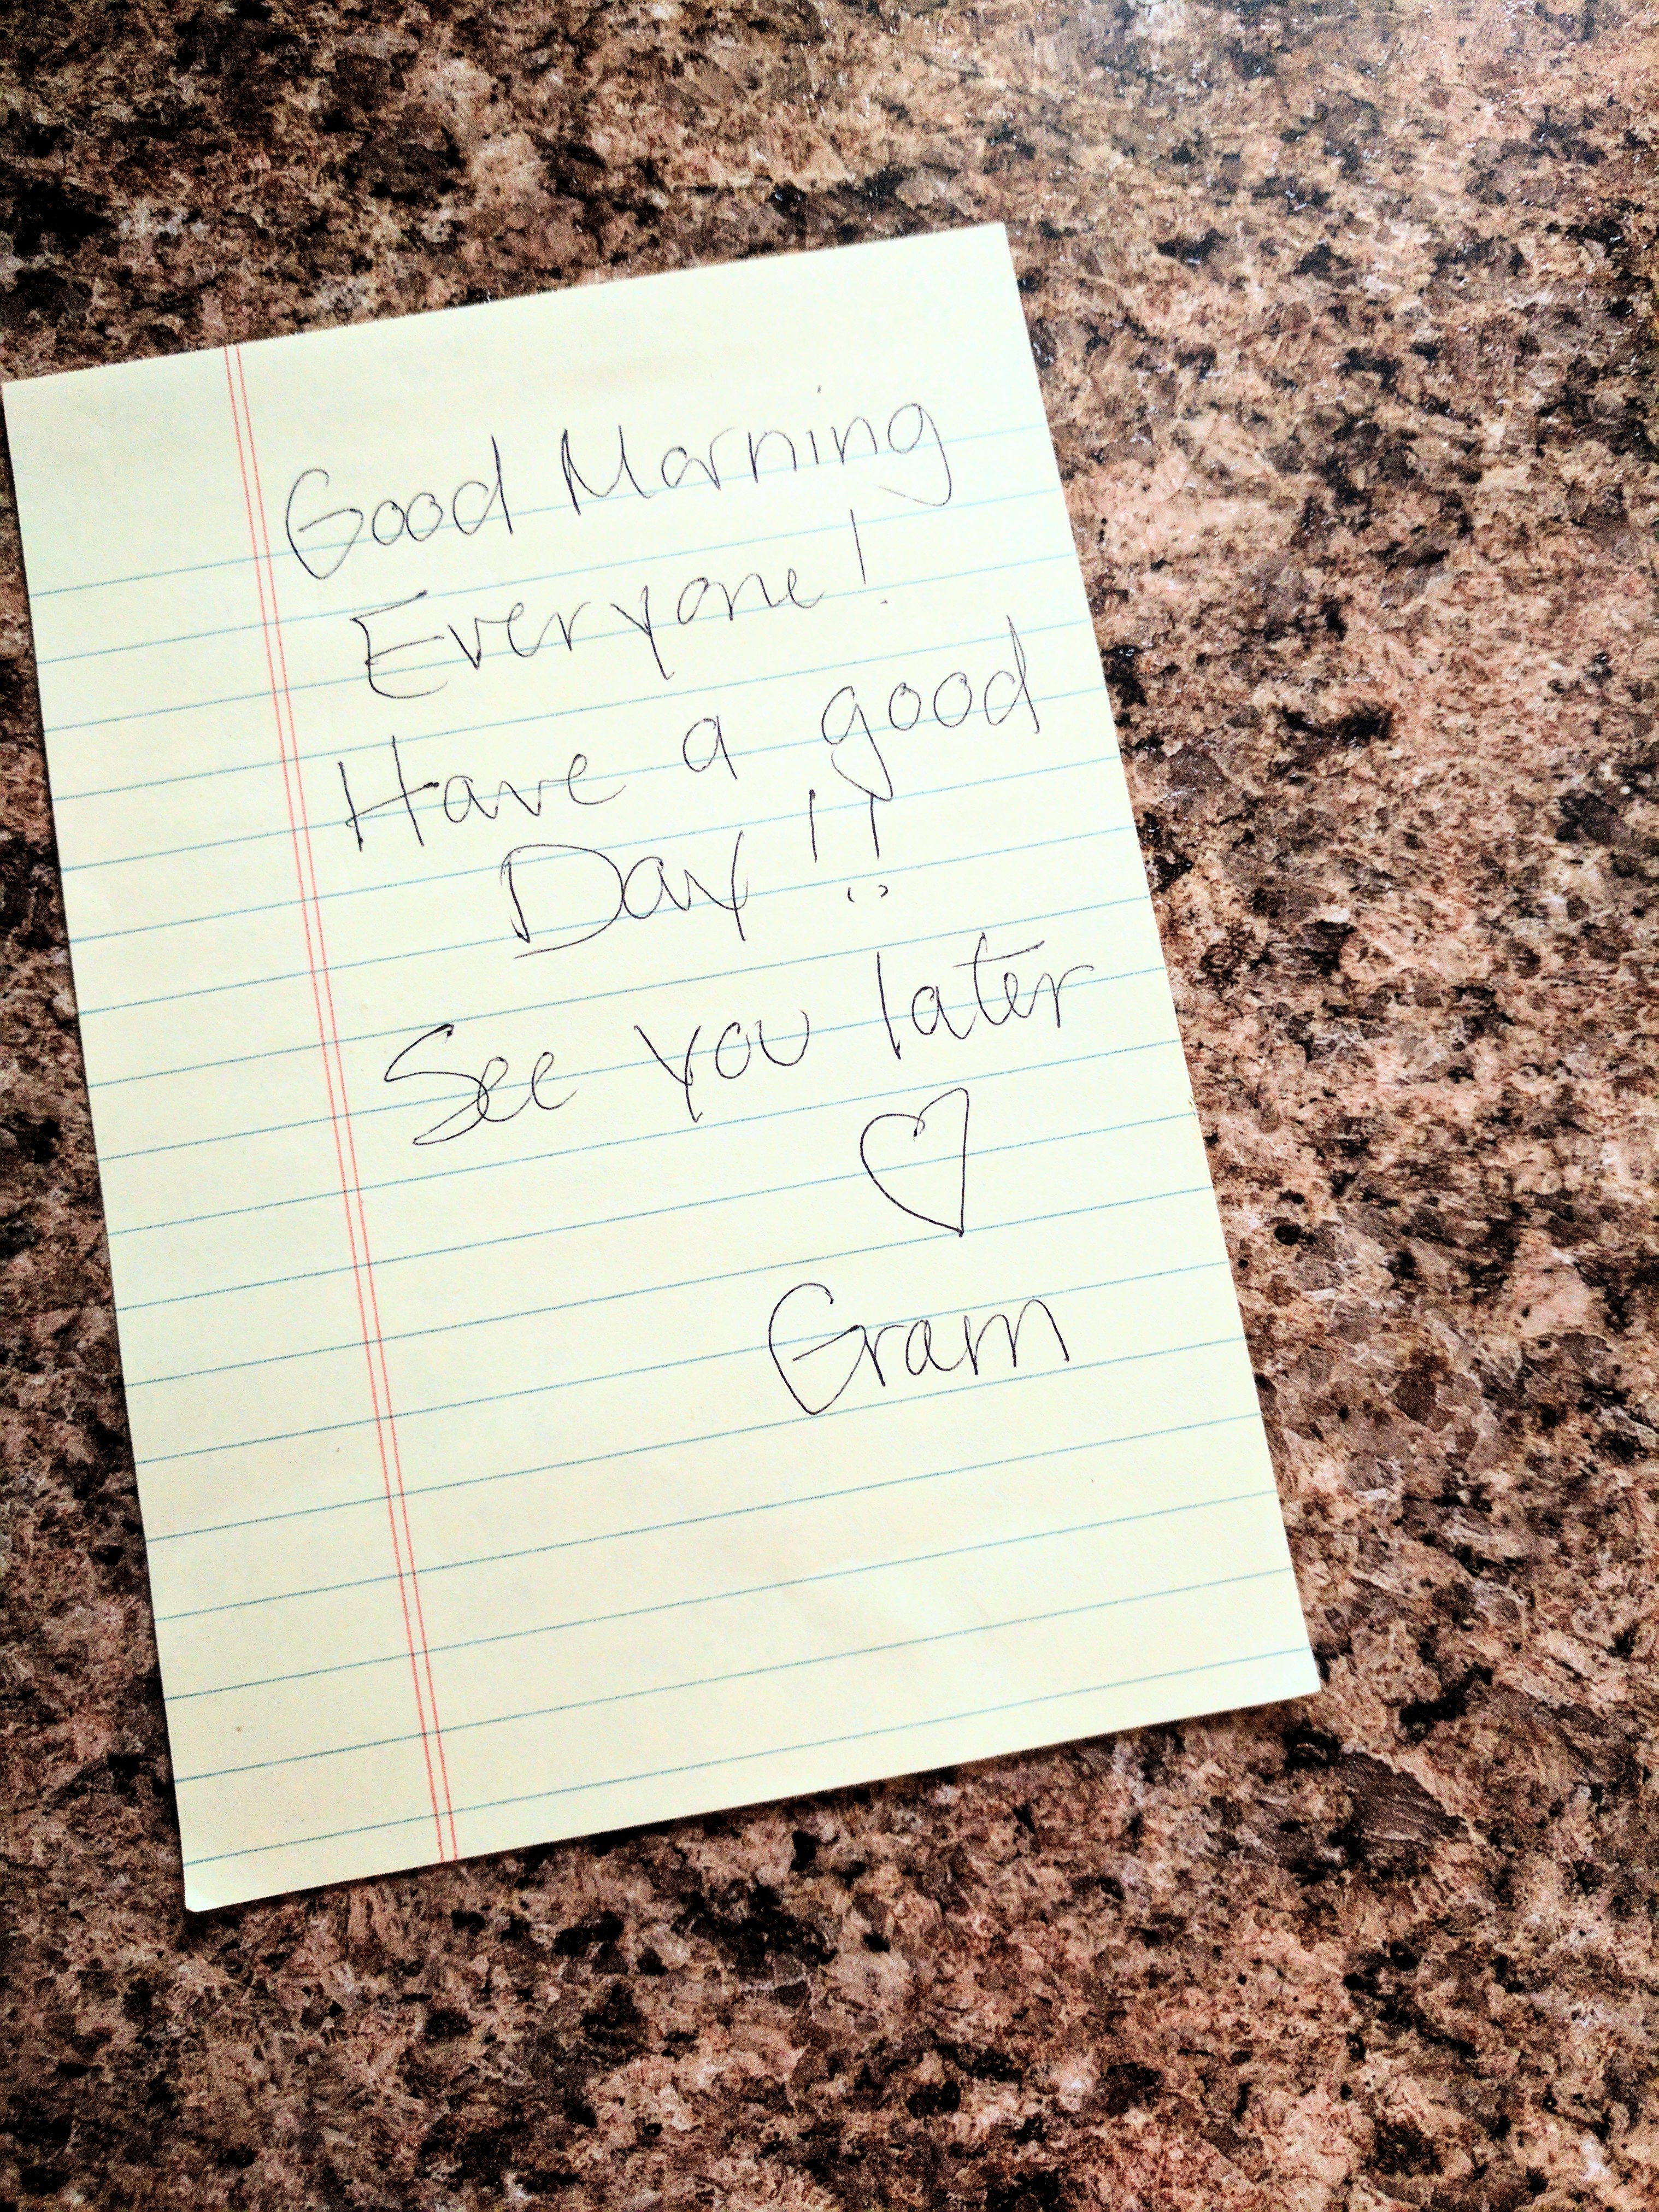 Good Morning
Everyone!
Have a good
Day!!
See you later
♡
Gram